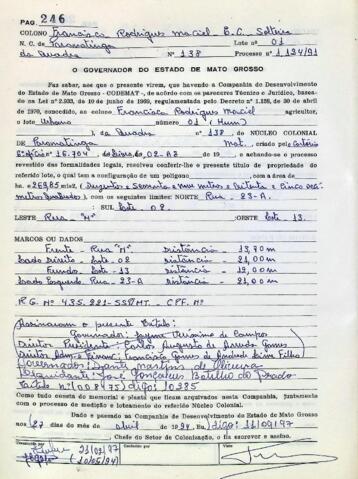 PAG. 246
COLONO Francisca Rodrigues Maciel E.C. Solteira
N. C. de Paranatinga Lote nº 01
da Quadra Nº 138 Processo nº 1.124/91
O GOVERNADOR DO ESTADO DE MATO GROSSO
Faz saber, aos que o presente virem, que havendo a Companhia de Desenvolvimento
do Estado de Mato Grosso - CODEMAT-, de acordo com os pareceres Técnico e Jurídico, basea-
dos na Lei nº 2.933, de 10 de junho de 1969, regulamentada pelo Decreto nº 1.138, de 30 de abril
de 1970, concedido, ao colono Francisca Rodrigues Maciel agricultor,
o lote Urbano número 01 (Hum)
), da Quadra nº 138 do NÚCLEO COLONIAL
DE Paranatinga Mat. criado pelo Cartório
nº 16.704 Livro 02-A3 de 19 e achando-se o proces-
so revestido das formalidades legais, resolveu conferir-lhe o presente título de propriedade do
referido lote, o qual tem a configuração de um polígono com a área de
ha e 269,85 m2 (Duzentos e Sessenta e nove metros e Oitenta e Cinco
metros quadrados), com os seguintes limites: NORTE Rua 23-A.
: SUL Lote 02
LESTE Rua "M" :OESTE Lote 13.
MARCOS OU DADOS
Frente - Rua "M" distância - 13,70 m
Lado Direito - Lote - 02 distância - 21,00 m
Fundo - Lote - 13 distância - 12,00 m
Lado Esquerdo - Rua 23-A distância - 21,00 m
R.G. Nº 435.221-SSP/MT. - CPF. Nº
Assinaram o presente título:
Governador: Jayme Veríssimo de Campos
Diretor Presidente: Carlos Augusto de Arruda Gomes
Diretor Adm. e Financ: Francisco Gomes de Andrade Lima Filho
Martins de Oliveira
José Gonçalves Botelho do Prado
Título nº 008475) digo: 10285
Como tudo consta do memorial e planta que ficam arquivados nesta Companhia, juntamente
com o processo de medição e loteamento do referido Núcleo Colonial.
Dado e passado na Companhia de Desenvolvimento do Estado de Mato Grosso
aos 27 dias do mês de abril de 1994 digo: 11/09/97
Chefe do Setor de Colonização, o fiz escrever e assino.
Visto